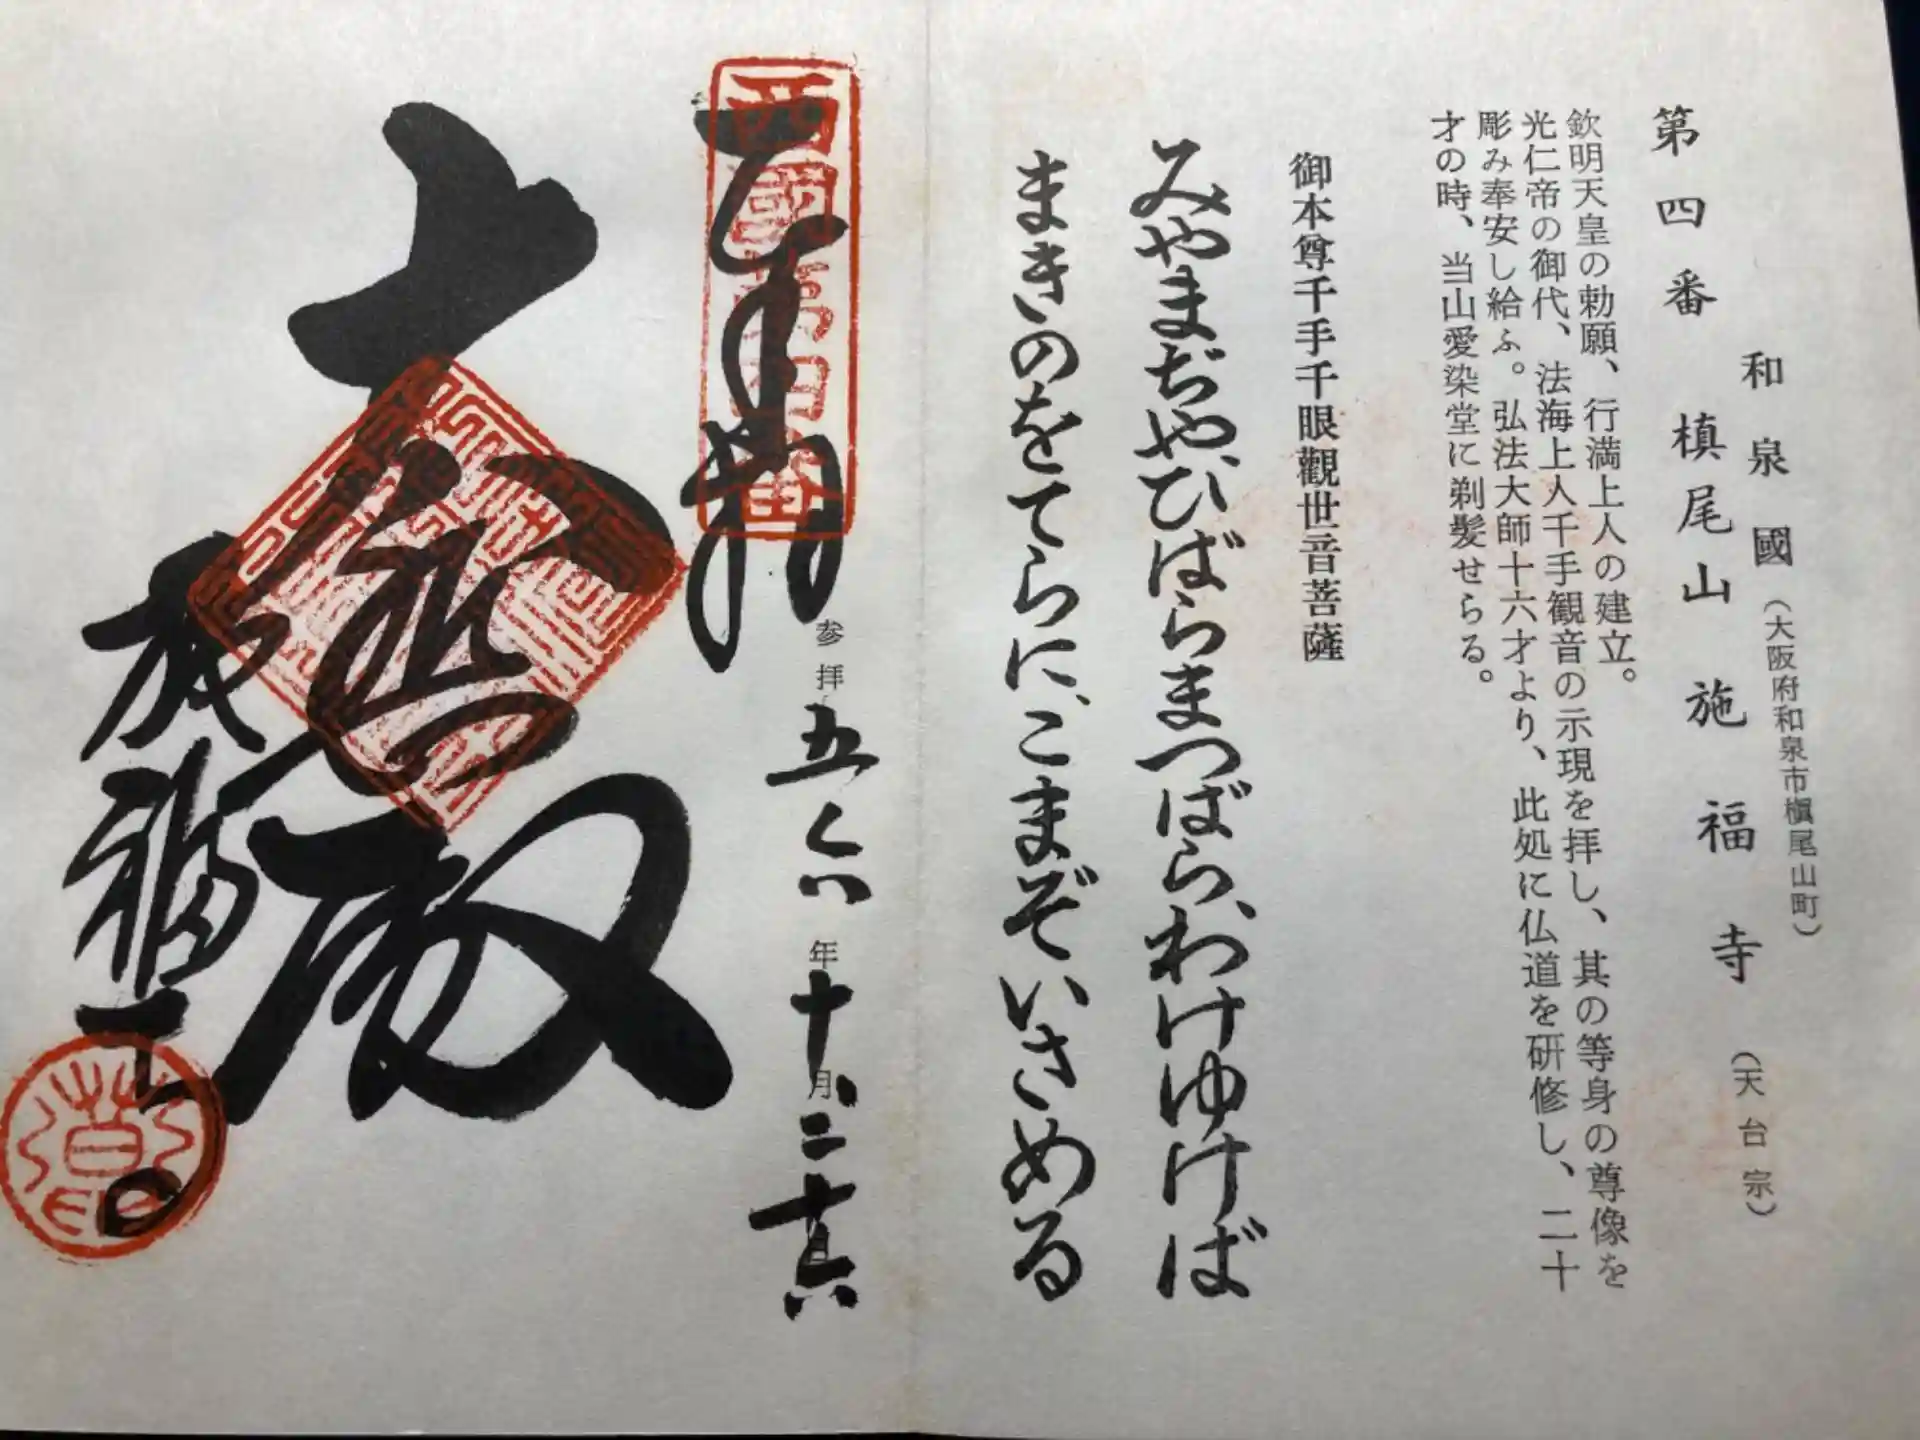 和泉國（大阪府和泉市槇尾山町）
第四番 槙尾山 施福寺（天台宗）
欽明天皇の勅願、行満上人の建立。
光仁帝の御代、法海上人千手観音の示現を拝し、其の等身の尊像を
彫み奉安し給ふ。弘法大師十六才より、此処に仏道を研修し、二十
才の時、当山愛染堂に剃髪せらる。
御本尊千手千眼觀世音菩薩
みやまぢや、ひばらまつばら、わけゆけば
まきのをてらに、こまぞいさめる
西國第四番
参拝五十六年十月二十六日
大悲殿
施福寺